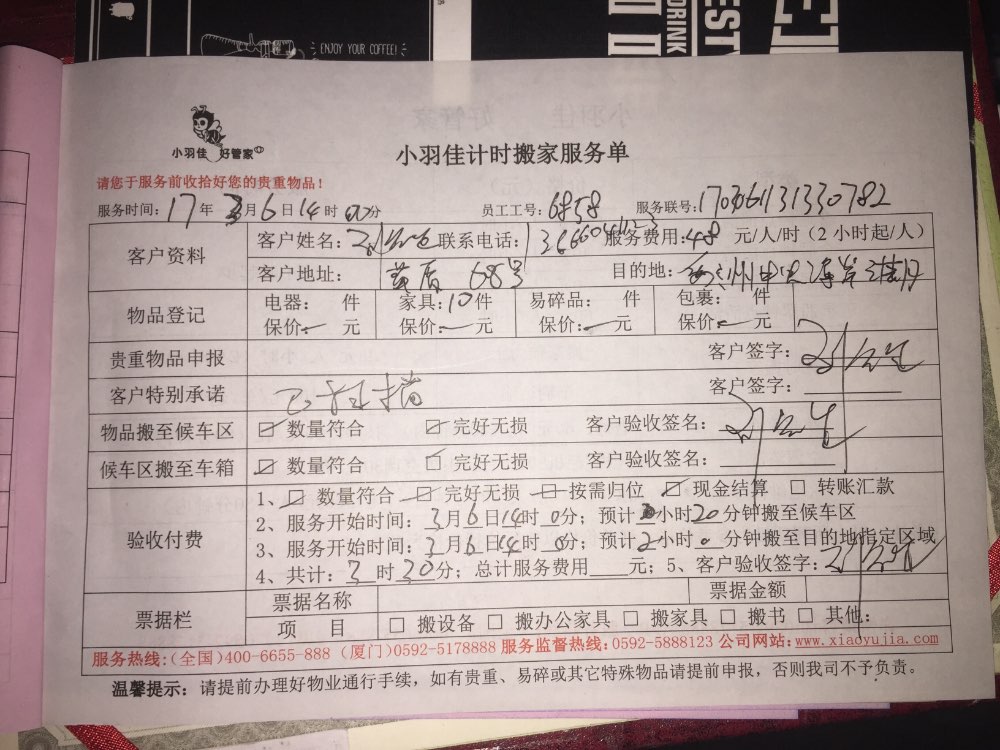 ENJOY YOUR COFFEE!
小羽佳 好管家
小羽佳计时搬家服务单
请您于服务前收拾好您的贵重物品！
服务时间：17年3月6日14时00分 员工工号：6858 服务联号：
客户资料 客户姓名： 联系电话： 服务费用：48 元/人/时（2小时起/人）
客户地址： 68号 目的地：
物品登记 电器： 件 家具：10件 易碎品： 件 包裹： 件
保价： 元 保价： 元 保价： 元 保价： 元
贵重物品申报 客户签字：
客户特别承诺 客户签字：
物品搬至候车区 ☑ 数量符合 ☑ 完好无损 客户验收签名：
候车区搬至车箱 ☑ 数量符合 ☑ 完好无损 客户验收签名：
验收付费 1、☑ 数量符合 ☑ 完好无损 ☑ 按需归位 ☑ 现金结算 □ 转账汇款
2、服务开始时间：3月6日14时0分；预计 小时20分钟搬至候车区
3、服务开始时间：3月6日14时0分；预计2小时0分钟搬至目的地指定区域
4、共计：3时30分；总计服务费用 元；5、客户验收签字：
票据栏 票据名称 票据金额
项 目 □ 搬设备 □ 搬办公家具 □ 搬家具 □ 搬书 □ 其他：
服务热线：（全国）400-6655-888（厦门）0592-5178888 服务监督热线：0592-5888123 公司网站：www.xiaoyujia.com
温馨提示：请提前办理好物业通行手续，如有贵重、易碎或其它特殊物品请提前申报，否则我司不予负责。